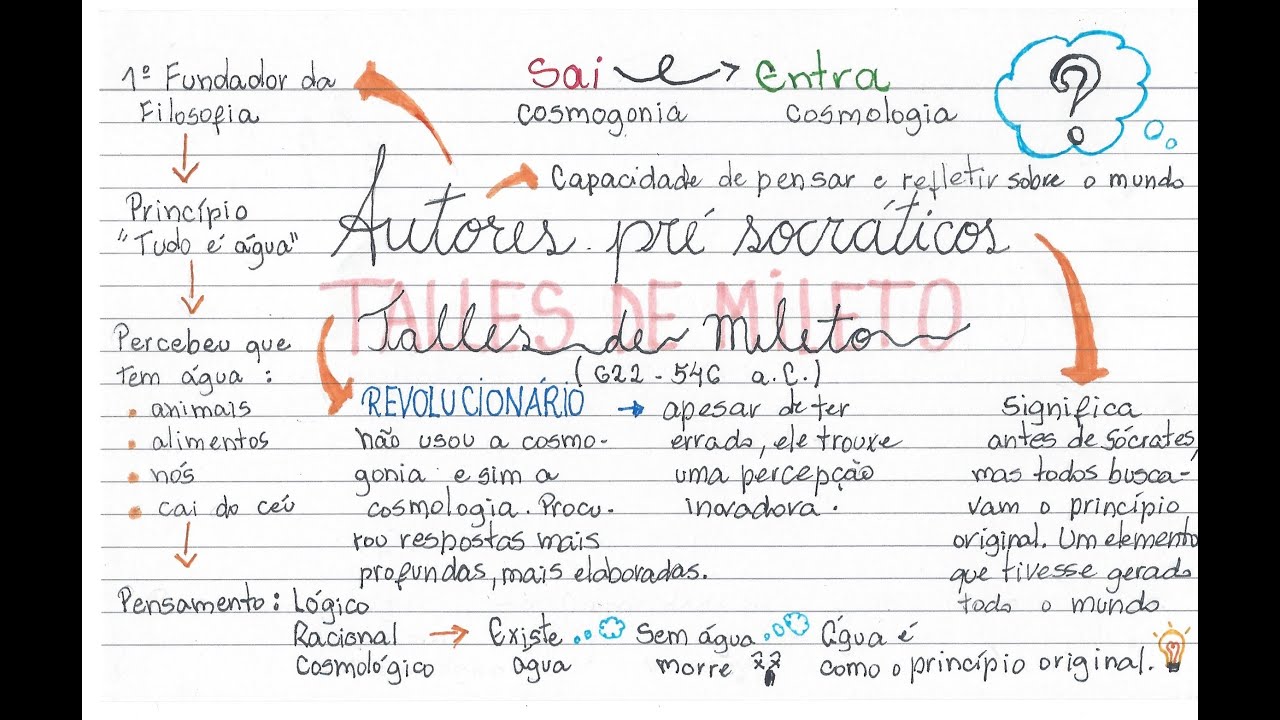 1º Fundador da
Filosofia
Princípio
"Tudo é água"
Percebeu que
tem água:
• animais
• alimentos
• nós
• cai do céu
Pensamento: Lógico
Racional
Cosmológico
Existe
água
Sem água
morre
Água é
como o princípio original.
Sai → Entra
cosmogonia Cosmologia
?
Capacidade de pensar e refletir sobre o mundo
Autores pré socráticos
TALLES DE MILETO
Talles de mileto
(622-546 a.C.)
REVOLUCIONÁRIO
não usou a cosmo-
gonia e sim a
cosmologia. Procu-
rou respostas mais
profundas, mais elaboradas.
→ apesar de ter
errado, ele trouxe
uma percepção
inovadora.
Significa
antes de Sócrates,
mas todos busca-
vam o princípio
original. Um elemento
que tivesse gerado
todo o mundo